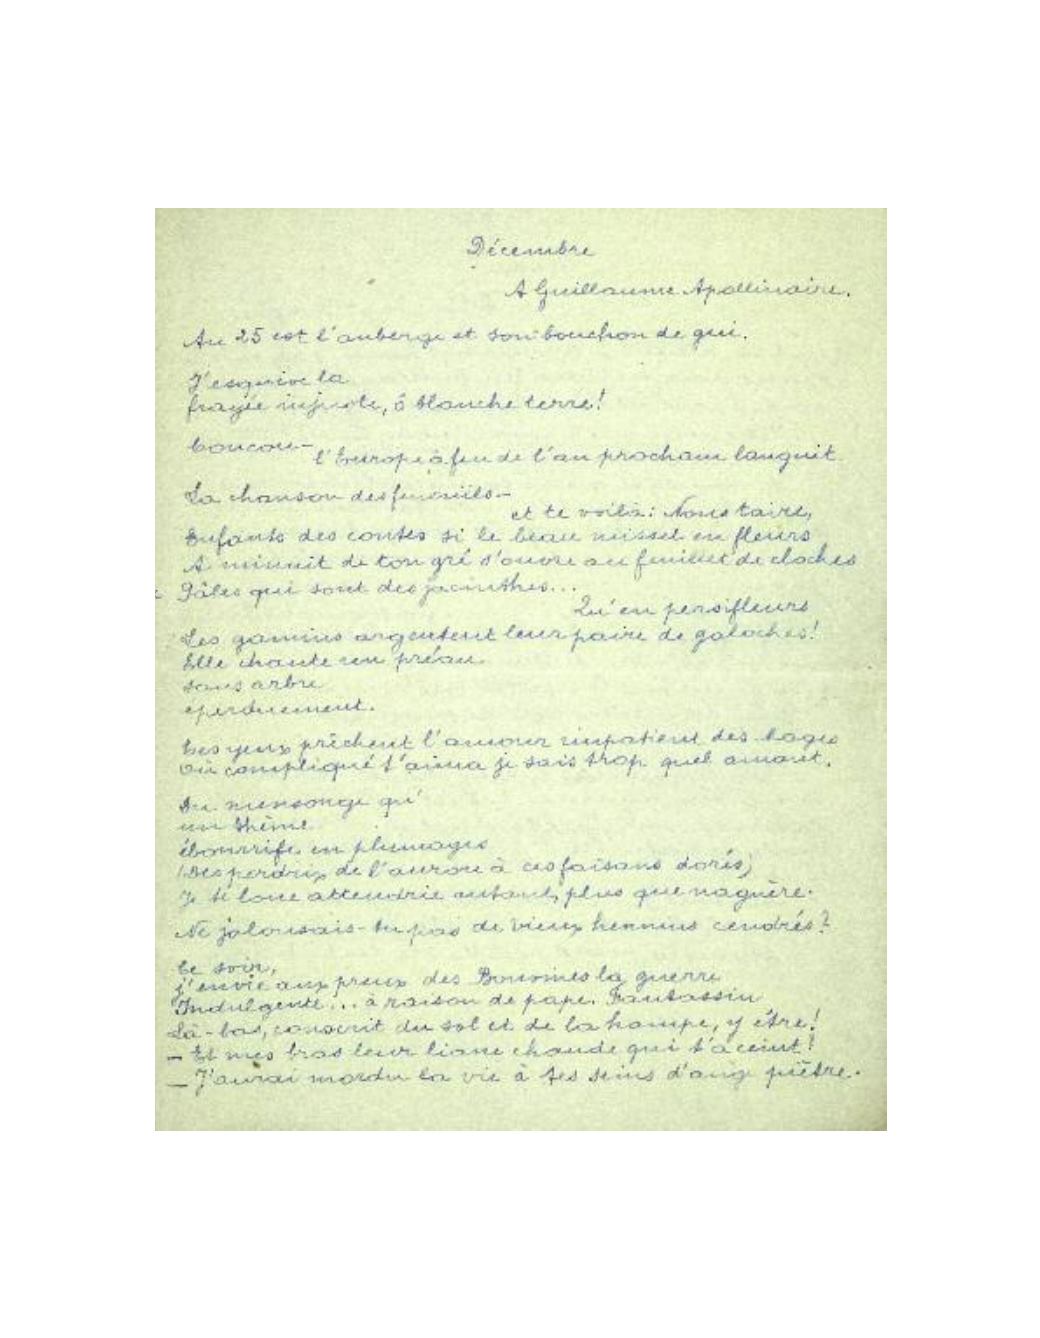 Décembre
A Guillaume Apollinaire.
Au 25 est l'auberge et son bouchon de gui.
J'esquive la
frayée injuste, ô blanche terre!
Coucou—
l'Europe à feu de l'an prochain languit
La chanson des
et te voilà: Nous taire,
Enfants des contes si le beau missel en fleurs
A minuit de ton gré s'ouvre au feuillet de cloches
Pâles qui sont des jacinthes...
Qu'en persifleurs
Les gamins argentent leur paire de galoches!
Elle chante un préau
sans arbre
éperduement.
Tes yeux prêchent l'amour impatient des bages
Où compliqué t'aima je sais trop quel amant.
Du mensonge qu'
un thème
ébouriffe en plumages
(Des perdrix de l'aurore à ces faisans dorés)
Je te loue attendrie autant, plus que naguère.
Ne jalousais-tu pas de vieux hennins cendrés?
Ce soir,
j'envie aux preux des Bouvines la guerre
Indulgente... à raison de pape. Fantassin
Là-bas, conscrit du sol et de la hampe, y être!
— Et mes bras leur liane chaude qui t'a ceint!
— J'aurai mordu la vie à tes seins d'ange piètre.